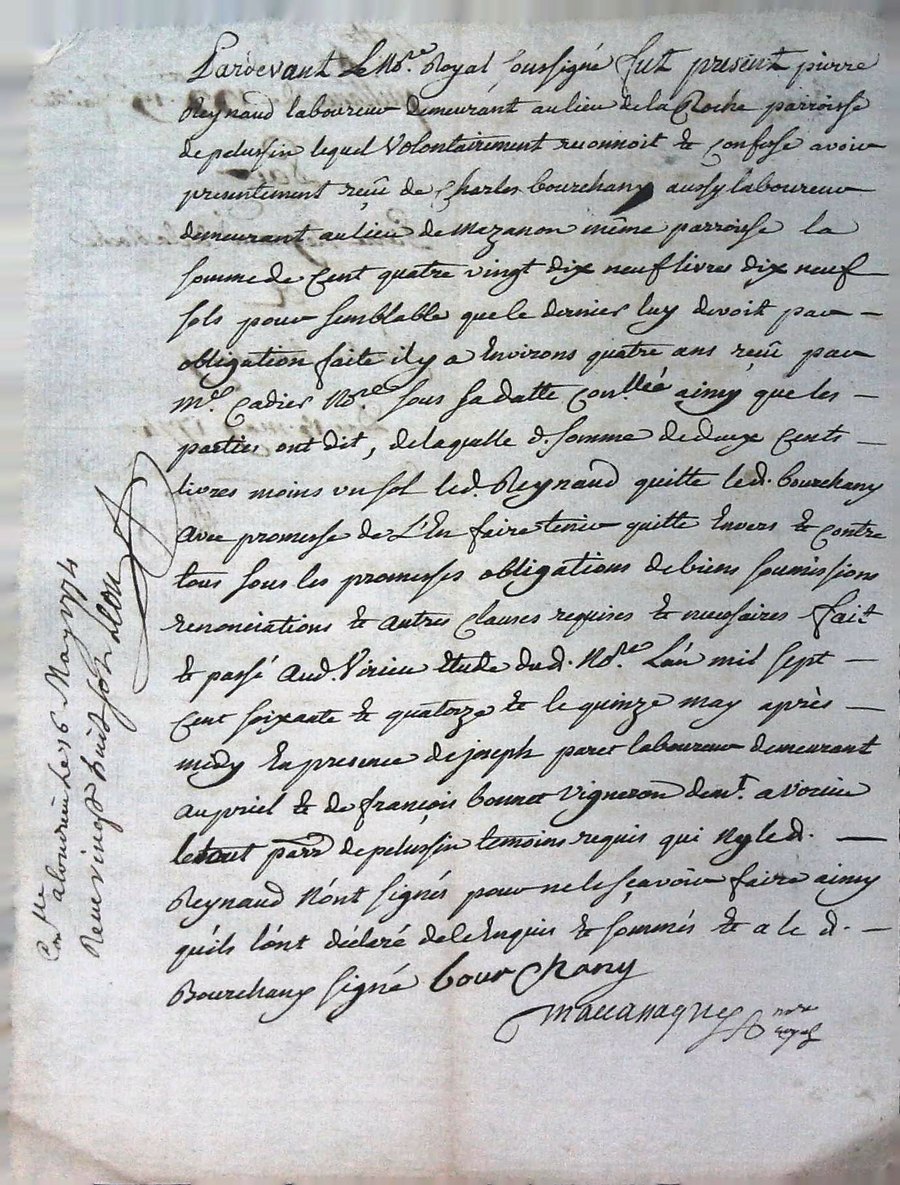 Pardevant Le No.re Royal soussigné fut présent pierre
Reynaud laboureur demeurant au lieu de la Roche parroisse
de pelussin lequel volontairement reconnoit & confesse avoir
presentement reçu de Charles bourchany aussy laboureur
demeurant au lieu de Mezanon même parroisse la
somme de Cent quatre vingt dix neuf livres dix neuf
sols pour semblable que le dernier luy devoit par —
obligation faite il y a Environs quatre ans reçue par
M.e Cadier No.re sous sa datte Con.llée ainsy que les —
parties ont dit, de laquelle d. somme de deux Cents —
livres moins un sol led. Reynaud quitte led. bourchany
avec promesse de L'En faire tenir quitte Envers & contre
tous sous les promesses obligations de biens soumissions
renonciations & autres clauses requises & necessaires fait
& passé aud. Virieu étude dud. No.re L'an mil sept —
Cent soixante & quatorze & le quinze may après —
midy En presence de joseph paret laboureur demeurant
au priel & de françois bonnet vigneron dem.t a Virieu
le tout parr de pelussin temoins requis qui ny led. —
Reynaud N'ont signés pour ne le sçavoir faire ainsy
qu'ils l'ont déclaré de ce Enquis & sommés & a le d. —
Bourchany signé bourchany
no.re
royal
Con.llé a 16 May 1774
Reçu vingt huit sols